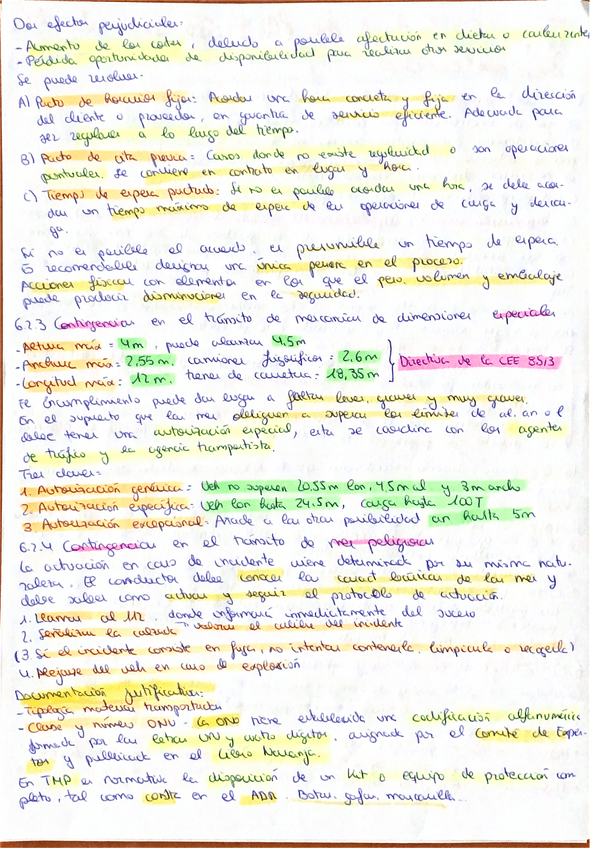 Dos efectos perjudiciales:
- Aumento de los costes, debido a posible afectación en clientes o
- Pérdida oportunidades de disponibilidad para realizar otros servicios
Se puede resolver:
A) Pacto de horarios fijos: Acordar una hora concreta y fija en la dirección
del cliente o proveedor, en garantía de servicio eficiente. Adecuada para
ser regulares a lo largo del tiempo.
B) Pacto de cita previa: Casos donde no existe regularidad o son operaciones
puntuales. Se conviene en contrato en lugar y hora.
C) Tiempo de espera pactado: Si no es posible acordar una hora, se debe acor-
dar un tiempo máximo de espera de las operaciones de carga y descar-
ga.
Si no es posible el acuerdo, es presumible un tiempo de espera.
Es recomendable designar una única persona en el proceso.
Acciones físicas con elementos en los que el peso, volumen y embalaje
puede producir disminuciones en la seguridad.
6.2.3 Contingencias en el tránsito de mercancía de dimensiones especiales
- Altura máx = 4m, puede alcanzar 4.5m
- Anchura máx: 2,55m, camiones frigoríficos: 2,6m
- Longitud máx: 12m, trenes de carretera: 18,35m
Directiva de la CEE 85/3
El incumplimiento puede dar lugar a faltas leves, graves y muy graves.
En el supuesto que las mer obliguen a superar los límites de al. an o l
debe tener una autorización especial, esta se coordina con los agentes
de tráfico y la agencia transportista.
Tres clases:
1. Autorización genérica: Veh no superen 20.55m lon, 4,5m al y 3m ancho
2. Autorización específica: Veh lon hasta 24.5m, carga hasta 100T
3 Autorización excepcional: Añade a las otras posibilidad an hasta 5m
6.2.4 Contingencias en el tránsito de mer peligrosas
La actuación en caso de incidente viene determinada por su misma natu-
raleza. El conductor debe conocer las caract básicas de las mer y
debe saber como actuar y seguir el protocolo de actuación.
1. Llamar al 112, donde informará inmediatamente del suceso
2. Señalizar la calzada valorar el calibre del incidente
(3. Si el incidente consiste en fuga, no intentar contenerla, limpiarla o recogerla)
4. Alejarse del veh en caso de explosión
Documentación justificativa:
- Tipología materias transportadas
- Clase y número ONU - La ONU tiene establecida una codificación alfanumérica
formada por las letras UN y cuatro dígitos, asignada por el Comité de Exper-
tos y publicada en el Libro Naranja.
En TMP es normativa la disposición de un Kit o equipo de protección com
pleto, tal como consta en el ADR. Botas, gafas, mascarilla...